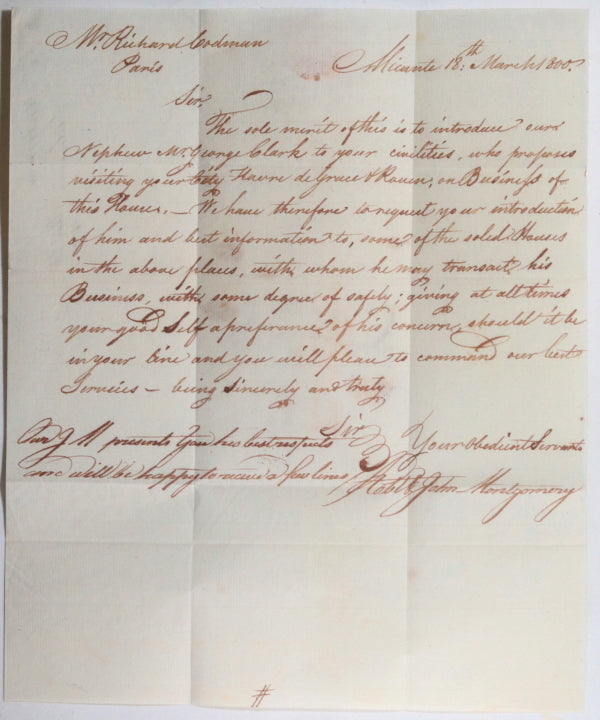 Mr. Richard Codman
Paris
Alicante 18th: March 1800.
Sir,
The sole merit of this is to introduce our
Nephew Mr. George Clark to your civilities, who proposes
visiting your City, Havre de Grace & Rouen, on Business of
this House. — We have therefore to request your introduction
of him and best information to, some of the solid Houses
in the above places, with whom he may transact his
Business, with some degree of safety; giving at all times
your good Self a preferance of his concern, should it be
in your line and you will please to command our best
Services — being sincerely and truly
Sir
Our J M presents You his best respects
Your Obedient Servants
and will be happy to receive a few lines
Robt & John Montgomery
#